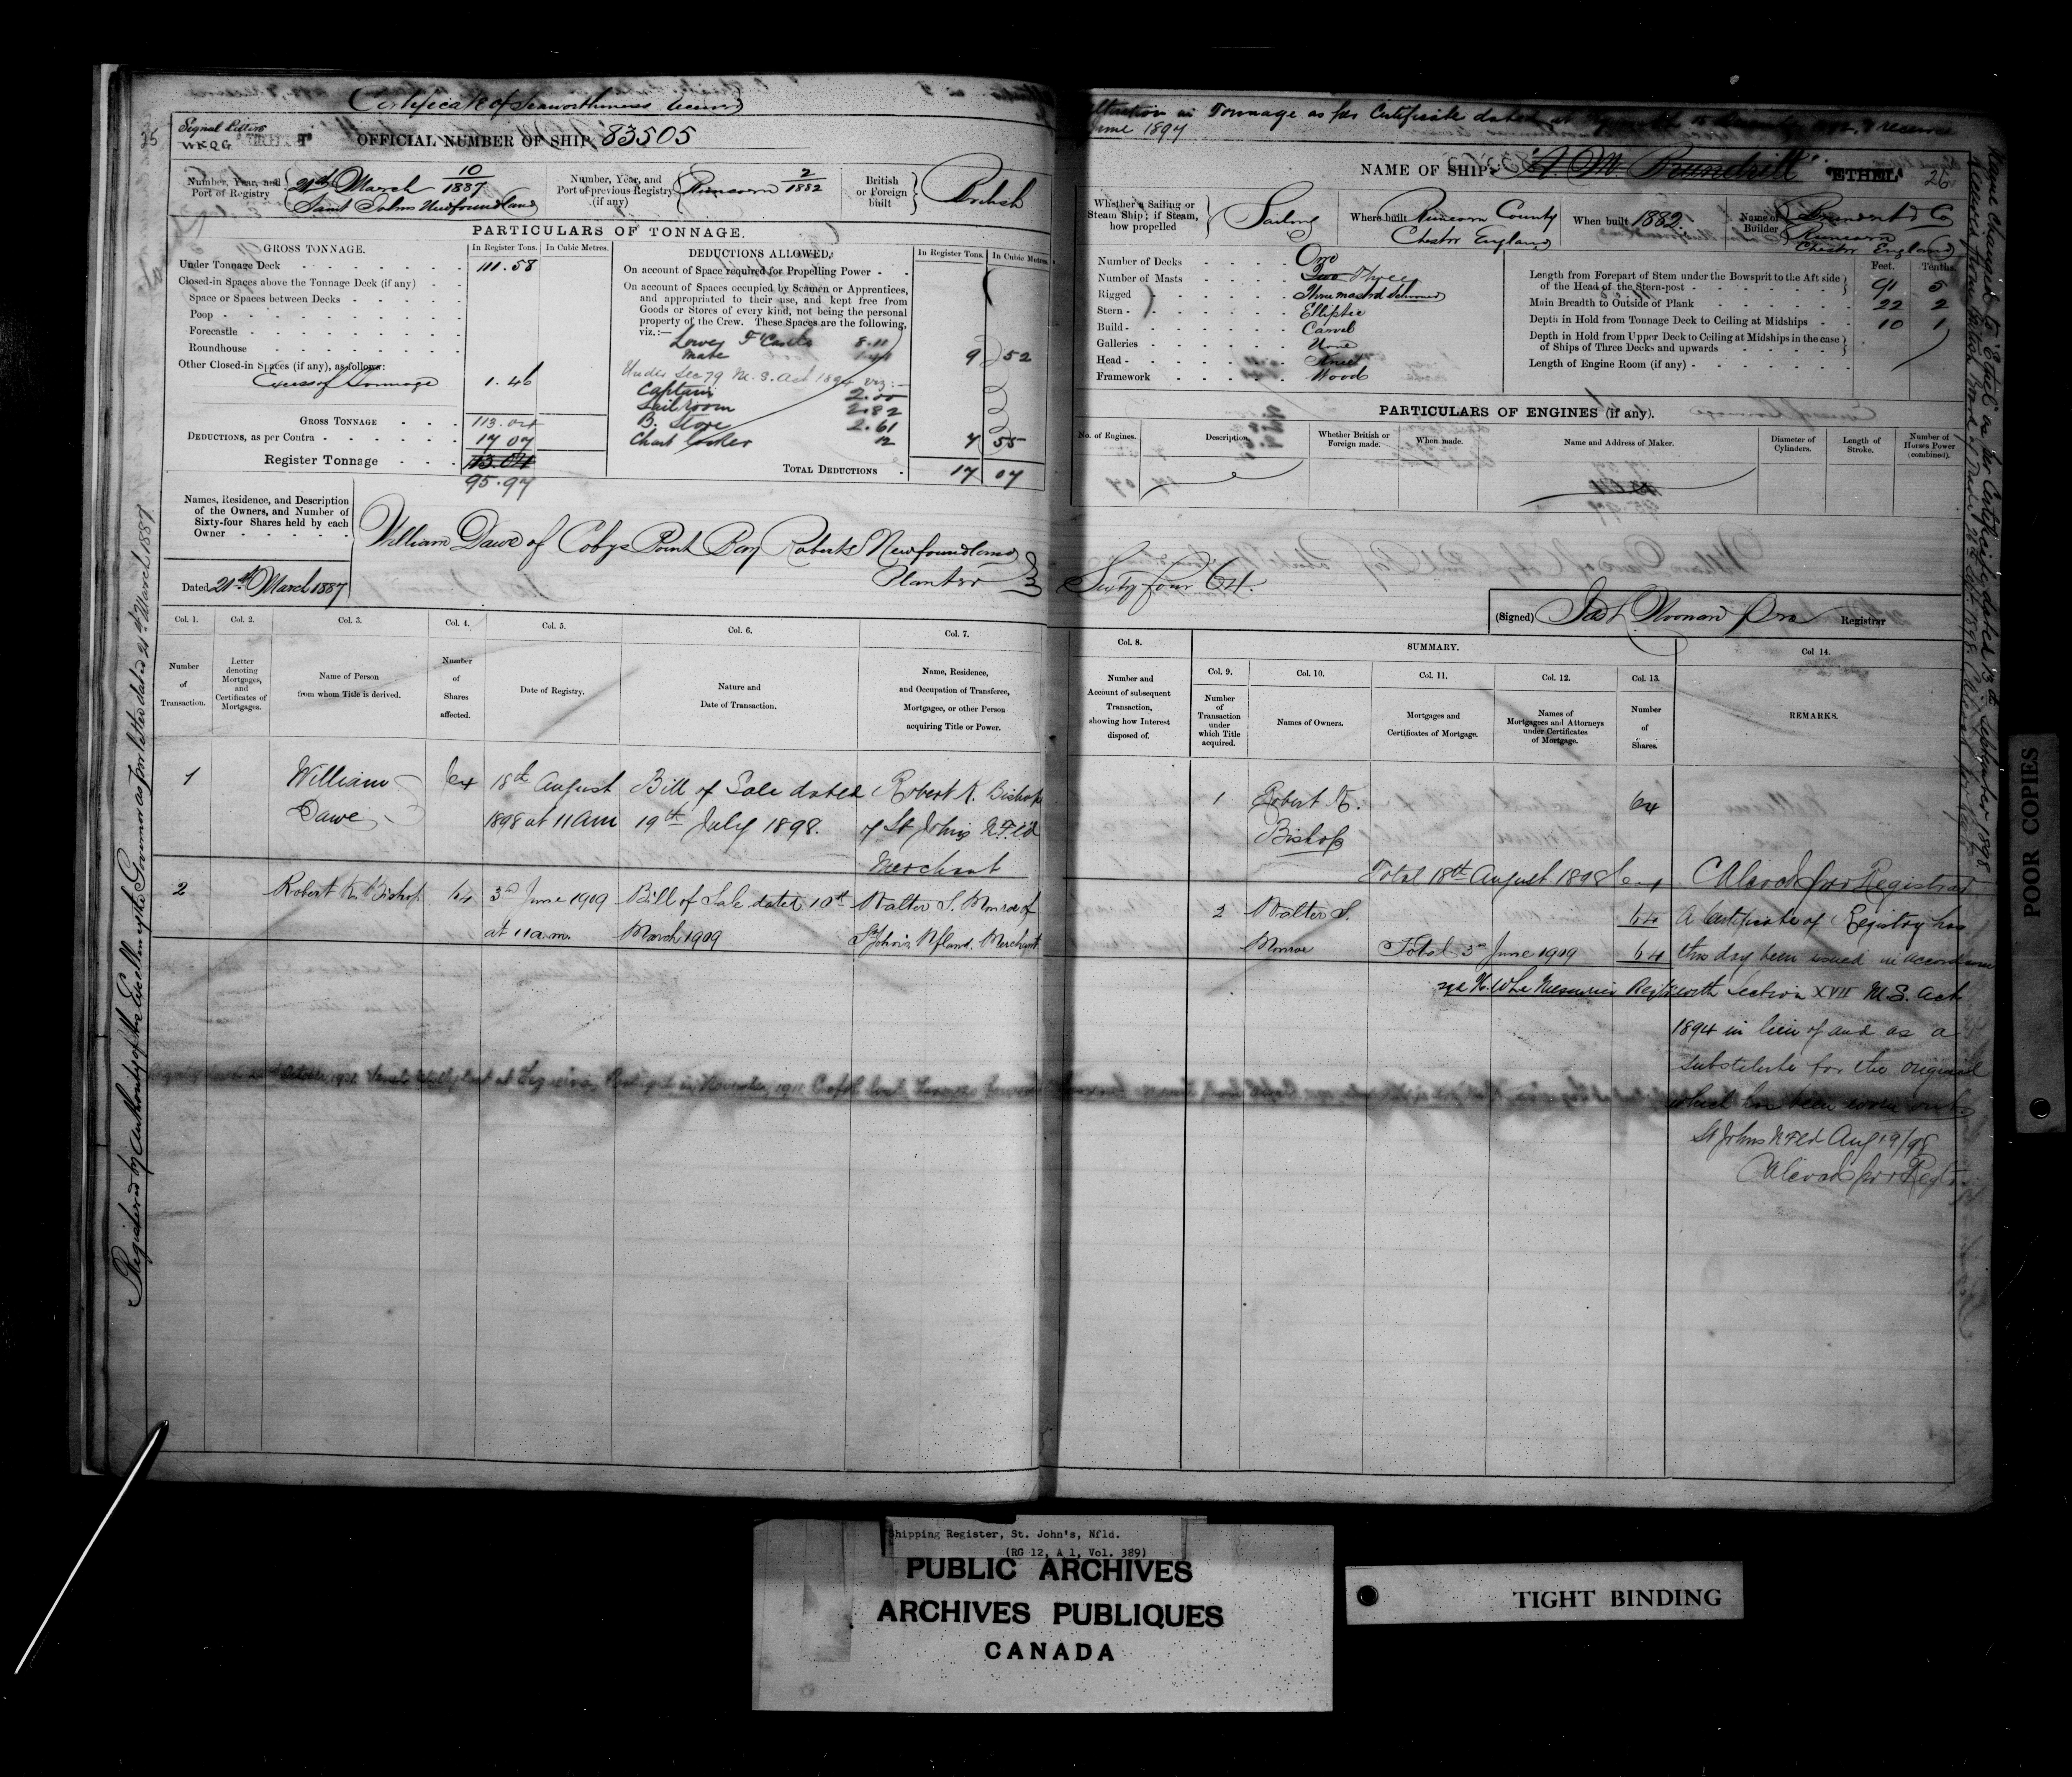 Certificate of Seaworthiness
25
Signal Letters
WKQG
OFFICIAL NUMBER OF SHIP, 83505
Number, Year, and Port of Registry
21st March 10/1887
Saint Johns Newfoundland
Number, Year, and Port of previous Registry (if any)
Runcorn 2/1882
British or Foreign built
British
PARTICULARS OF TONNAGE.
GROSS TONNAGE.
In Register Tons.
In Cubic Metres.
Under Tonnage Deck 111.58
Closed-in Spaces above the Tonnage Deck (if any)
Space or Spaces between Decks
Poop
Forecastle
Roundhouse
Other Closed-in Spaces (if any), as follows:
Excess of Tonnage 1.46
GROSS TONNAGE 113.04
DEDUCTIONS, as per Contra 17 07
Register Tonnage 113.04
95.97
DEDUCTIONS ALLOWED.
In Register Tons.
In Cubic Metres.
On account of Space required for Propelling Power
On account of Spaces occupied by Seamen or Apprentices,
and appropriated to their use, and kept free from
Goods or Stores of every kind, not being the personal
property of the Crew. These Spaces are the following,
viz.:—
Lower F'Castle 8.11
Mate 1.41 9 52
Under Sec 79 M. S. Act 1894 viz:—
Captain 2.00
Sailroom 2.82
B. Store 2.61
Chart locker 12 7 55
TOTAL DEDUCTIONS 17 07
Names, Residence, and Description
of the Owners, and Number of
Sixty-four Shares held by each
Owner
William Dawe of Cobys Point Bay Roberts Newfoundland
Planter
Dated 21st March 1887
Col. 1.
Col. 2.
Col. 3.
Col. 4.
Col. 5.
Col. 6.
Col. 7.
Number of Transaction.
Letter denoting Mortgages, and Certificates of Mortgages.
Name of Person from whom Title is derived.
Number of Shares affected.
Date of Registry.
Nature and Date of Transaction.
Name, Residence, and Occupation of Transferee, Mortgagee, or other Person acquiring Title or Power.
1 William 64 18th August Bill of Sale dated Robert K. Bishop
Dawe 1898 at 11 am 19th July 1898. of St Johns N.F.ld
Merchant
2 Robert K. Bishop 64 3rd June 1909 Bill of Sale dated 10th Walter S. Monroe of
at 11 a.m. March 1909 St John's Nfland. Merchant
Registered by Authority of His Excellency the Governor as per letter dated 21st March 1887
Alteration in Tonnage as per Certificate dated at
June 1894
NAME OF SHIP. "A. M. Brundrit". "ETHEL"
26
Whether a Sailing or Steam Ship; if Steam, how propelled
Sailing
Where built
Runcorn County
Chester England
When built 1882.
Name of Builder
Brundrit & Co
Runcorn
Chester England
Number of Decks One
Number of Masts Two Three
Rigged Three masted Schooner
Stern Elliptic
Build Carvel
Galleries None
Head Knee
Framework Wood
Feet. Tenths.
Length from Forepart of Stem under the Bowsprit to the Aft side
of the Head of the Stern-post 91 5
Main Breadth to Outside of Plank 22 2
Depth in Hold from Tonnage Deck to Ceiling at Midships 10 1
Depth in Hold from Upper Deck to Ceiling at Midships in the case
of Ships of Three Decks and upwards
Length of Engine Room (if any)
PARTICULARS OF ENGINES (if any).
No. of Engines.
Description.
Whether British or Foreign made.
When made.
Name and Address of Maker.
Diameter of Cylinders.
Length of Stroke.
Number of Horses Power (combined).
Sixty four 64.
(Signed) Registrar
Col. 8.
SUMMARY.
Col. 9.
Col. 10.
Col. 11.
Col. 12.
Col. 13.
Col 14.
Number and Account of subsequent Transaction, showing how Interest disposed of.
Number of Transaction under which Title acquired.
Names of Owners.
Mortgages and Certificates of Mortgage.
Names of Mortgagees and Attorneys under Certificates of Mortgage.
Number of Shares.
REMARKS.
1 Robert K. 64
Bishop
Total 18th August 1898 64
Registrar
2 Walter S. 64
Monroe Total 3rd June 1909 64
A Certificate of Registry has
this day been issued in accordance
with Section XVII M.S. Act
1894 in lieu of and as a
substitute for the original
which has been worn out
St Johns NFld Aug 19/98
Name changed to "Ethel" as per Certificate dated 13th September 1898
POOR COPIES
Shipping Register, St. John's, Nfld.
(RG 12, A 1, Vol. 389)
PUBLIC ARCHIVES
ARCHIVES PUBLIQUES
CANADA
TIGHT BINDING